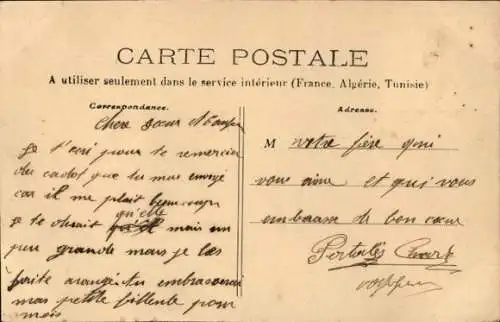 CARTE POSTALE
A utiliser seulement dans le service intérieur (France, Algérie, Tunisie)
Correspondance.
Chere sœur et
Je t'ecri pour te remercier
du cadot que tu mas envoyé
car il me plait beaucoup
je te dirait qu'elle mais un
peu grande mais je las
farite arangé. tu embrasserai
mas petite fillente pour
mois
Adresse.
M votre frère qui
vous aime et qui vous
embrasse de bon cœur